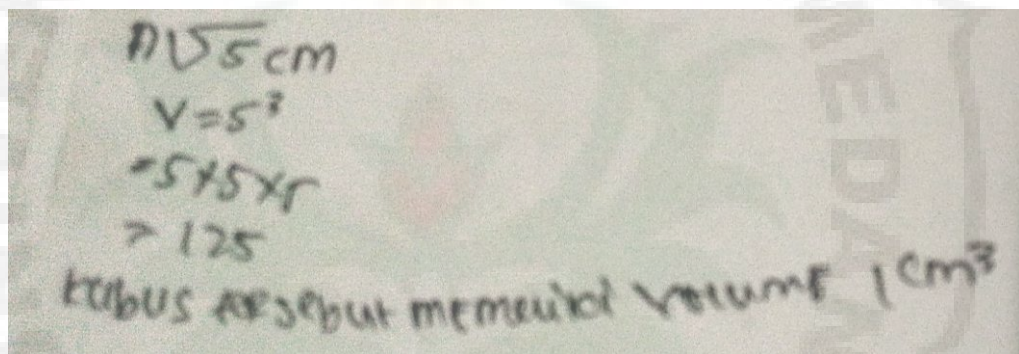 n√5 cm
V=5³
=5×5×5
= 125
kubus tersebut memiliki volume 1 cm³
MEDAN